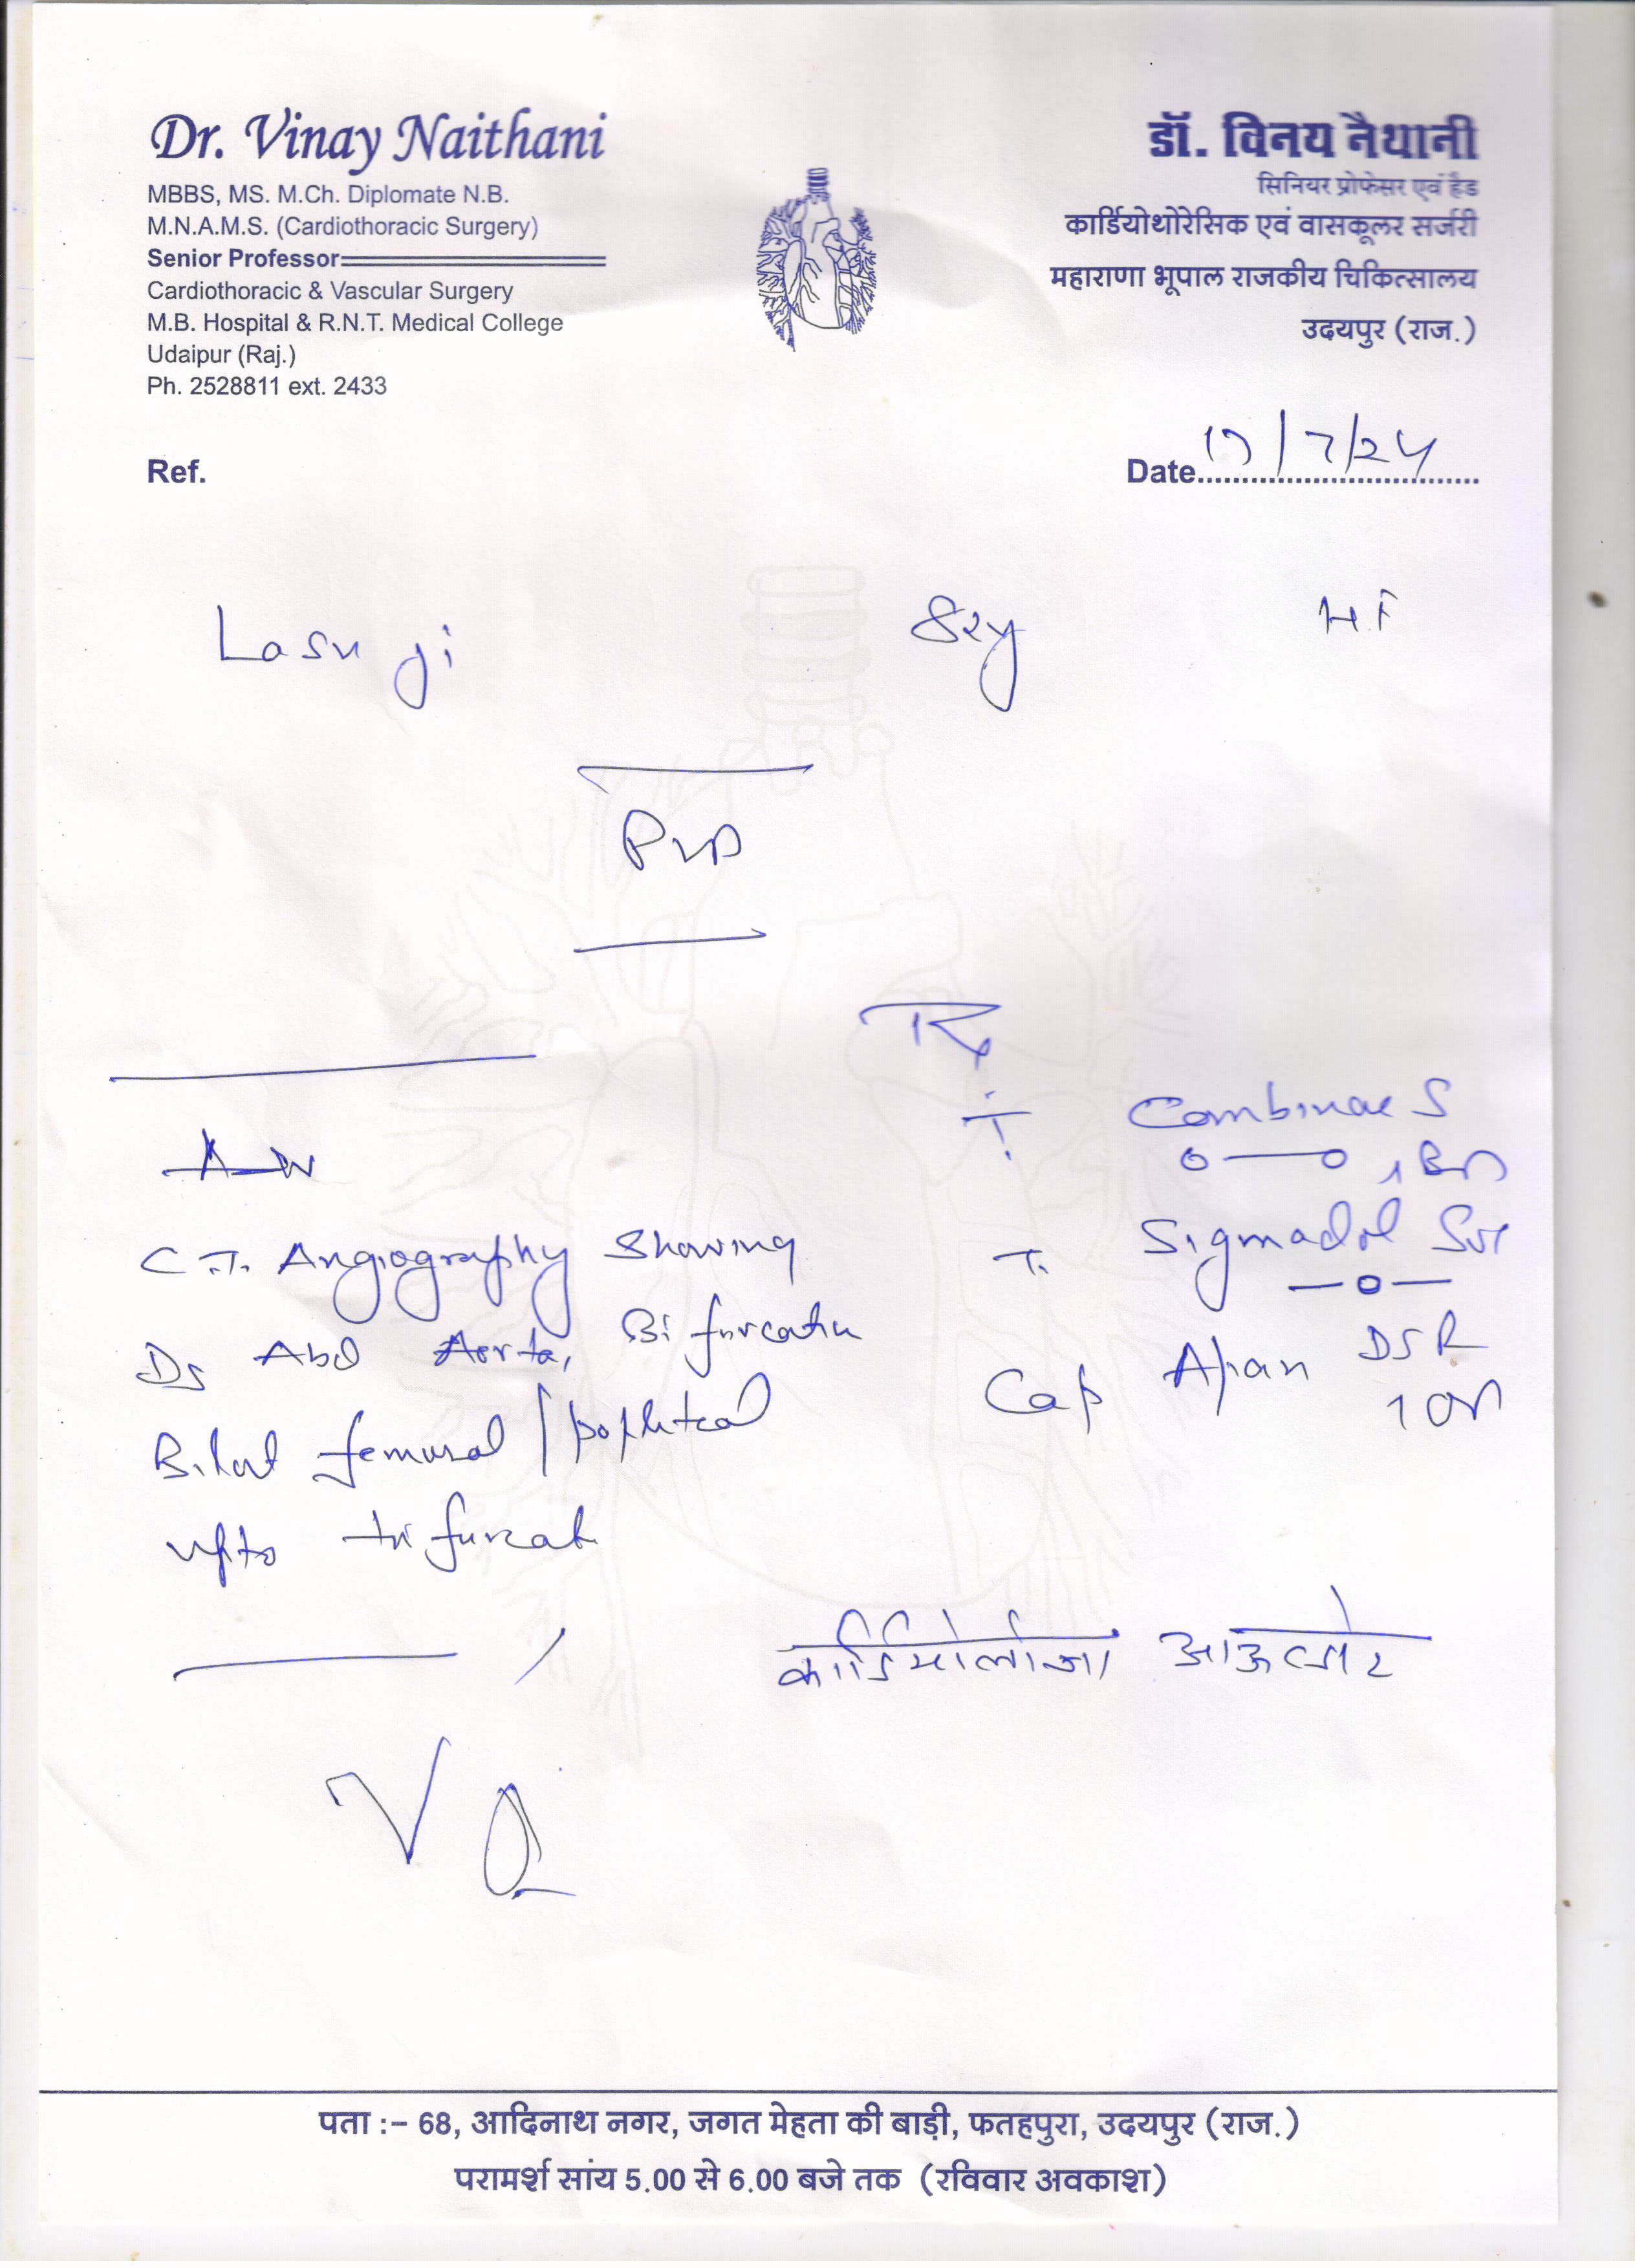 Dr. Vinay Naithani
MBBS, MS. M.Ch. Diplomate N.B.
M.N.A.M.S. (Cardiothoracic Surgery)
Senior Professor
Cardiothoracic & Vascular Surgery
M.B. Hospital & R.N.T. Medical College
Udaipur (Raj.)
Ph. 2528811 ext. 2433
डॉ. विनय नैथानी
सिनियर प्रोफेसर एवं हैड
कार्डियोथोरेसिक एवं वासकूलर सर्जरी
महाराणा भूपाल राजकीय चिकित्सालय
उदयपुर (राज.)
Ref.
Date 17/7/24
Lasu ji 82y
PVD
C.T. Angiography Showing
Abd Aorta, Bifurcatin
Bilat femural / popliteal
upto trifurcat
Rx
T. S
1 BD
T. Sigmadol
Cap DSR
1 OD
कार्डियोलोजी आउटडोर
पता :– 68, आदिनाथ नगर, जगत मेहता की बाड़ी, फतहपुरा, उदयपुर (राज.)
परामर्श सांय 5.00 से 6.00 बजे तक (रविवार अवकाश)